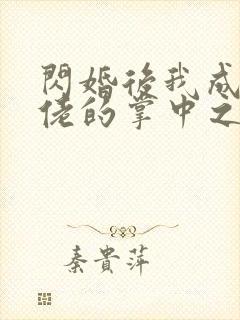 閃婚後我成
佬的掌中之
秦貴萍